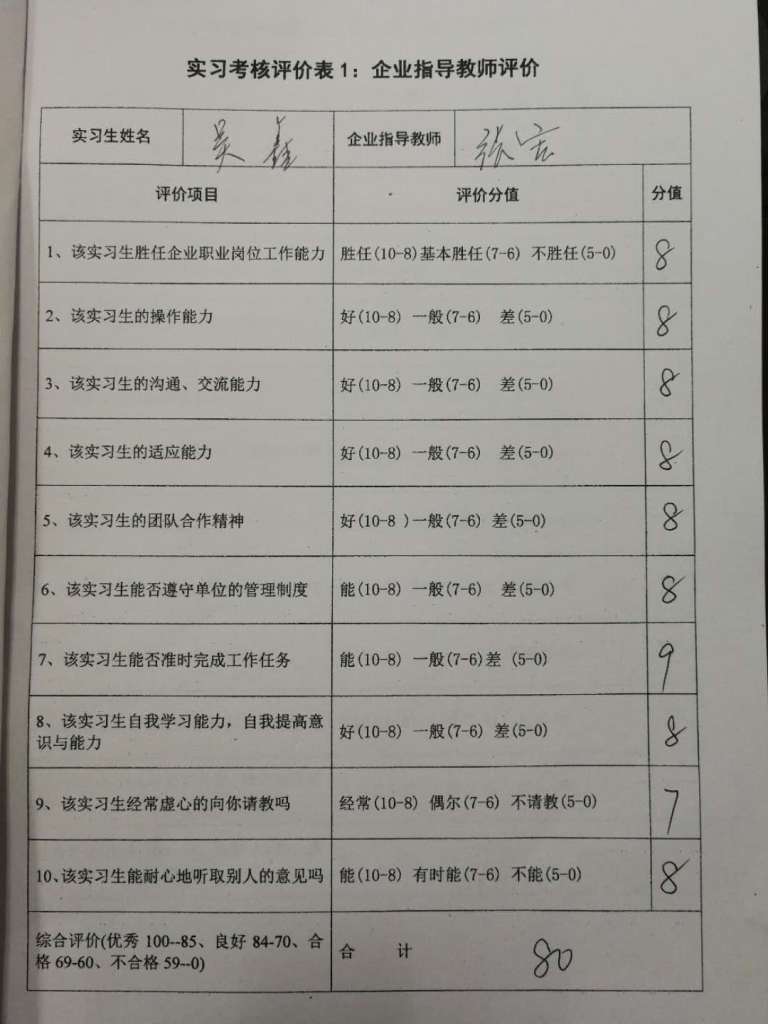 实习考核评价表1：企业指导教师评价
实习生姓名 吴鑫 企业指导教师 张宏
评价项目 评价分值 分值
1、该实习生胜任企业职业岗位工作能力 胜任(10-8)基本胜任(7-6) 不胜任(5-0) 8
2、该实习生的操作能力 好(10-8) 一般(7-6) 差(5-0) 8
3、该实习生的沟通、交流能力 好(10-8) 一般(7-6) 差(5-0) 8
4、该实习生的适应能力 好(10-8) 一般(7-6) 差(5-0) 8
5、该实习生的团队合作精神 好(10-8 )一般(7-6) 差(5-0) 8
6、该实习生能否遵守单位的管理制度 能(10-8) 一般(7-6) 差(5-0) 8
7、该实习生能否准时完成工作任务 能(10-8) 一般(7-6)差 (5-0) 9
8、该实习生自我学习能力，自我提高意
识与能力 好(10-8) 一般(7-6) 差(5-0) 8
9、该实习生经常虚心的向你请教吗 经常(10-8) 偶尔(7-6) 不请教(5-0) 7
10、该实习生能耐心地听取别人的意见吗 能(10-8) 有时能(7-6) 不能(5-0) 8
综合评价(优秀 100--85、良好 84-70、合
格 69-60、不合格 59--0) 合 计 80